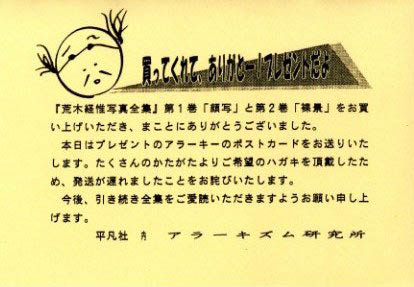 買ってくれて、ありがとー！プレゼントだよ
『荒木経惟写真全集』第1巻「顔写」と第2巻「裸景」をお買
い上げいただき、まことにありがとうございました。
本日はプレゼントのアラーキーのポストカードをお送りいた
します。たくさんのかたがたよりご希望のハガキを頂戴したた
め、発送が遅れましたことをお詫びいたします。
今後、引き続き全集をご愛読いただきますようお願い申し上
げます。
平凡社 内 アラーキズム研究所